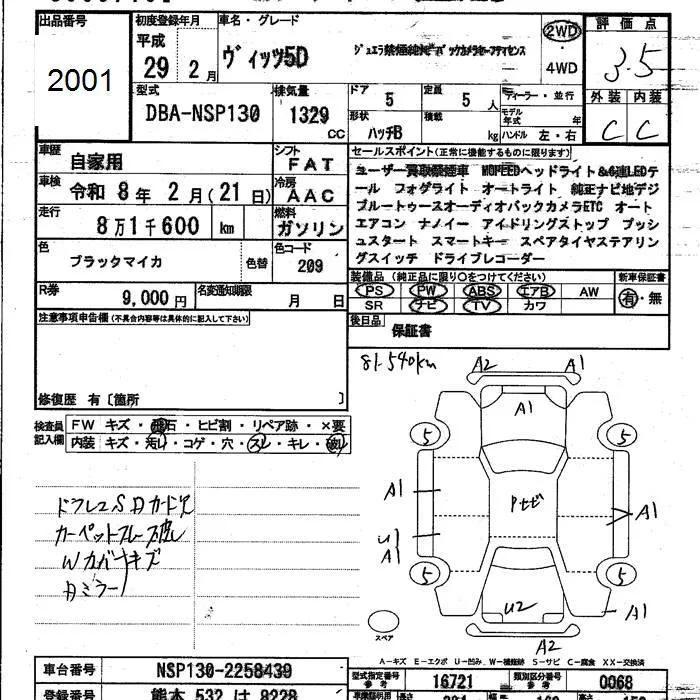 出品番号
2001
初度登録年月
平成
29 2 月
車名・グレード
ヴィッツ5D
2WD
・
4WD
評価点
3.5
外装 内装
C C
型式
DBA-NSP130
排気量
1329
CC
ドア
5
定員
5 人
ディーラー・並行
形状
ハッチB
積載
kg
モデル年式 年
ハンドル 左・右
車歴
自家用
シフト
FAT
車検
令和 8 年 2 月(21 日)
冷房
AAC
走行
8 万 1 千 600 km
燃料
ガソリン
色
ブラックマイカ
色替
色コード
209
R券
9,000 円
名変通知期限
月 日
セールスポイント(正常に機能するものに限ります)
ユーザー買取禁煙車 MOPEEDヘッドライト&6連LEDテ
ール フォグライト オートライト 純正ナビ地デジ
ブルートゥースオーディオバックカメラETC オート
エアコン ナノイー アイドリングストップ プッシ
ュスタート スマートキー スペアタイヤステアリン
グスイッチ ドライブレコーダー
装備品(純正品に限り○をつけてください)
新車保証書
PS PW ABS エアB AW
SR ナビ TV カワ
有・無
後日品
保証書
注意事項申告欄(不具合内容等は具体的に記入して下さい)
修復歴 有〔箇所 〕
検査員
記入欄
FW キズ・飛石・ヒビ割・リペア跡・×要
内装 キズ・汚れ・コゲ・穴・スレ・キレ・破れ
81,540km
A2 A1
A1
5 5
A1
Pセゼ
A1
U
A1
5 5
U2
A1
A2
スペア
ドラレコSDカード欠
Wカバーキズ
Aミラー
A-キズ E-エクボ U-凹み W-補修跡 S-サビ C-腐食 XX-交換済
車台番号
NSP130-2258439
型式指定番号
参考
16721
類別区分番号
参考
0068
登録番号
熊本 532 は 8228